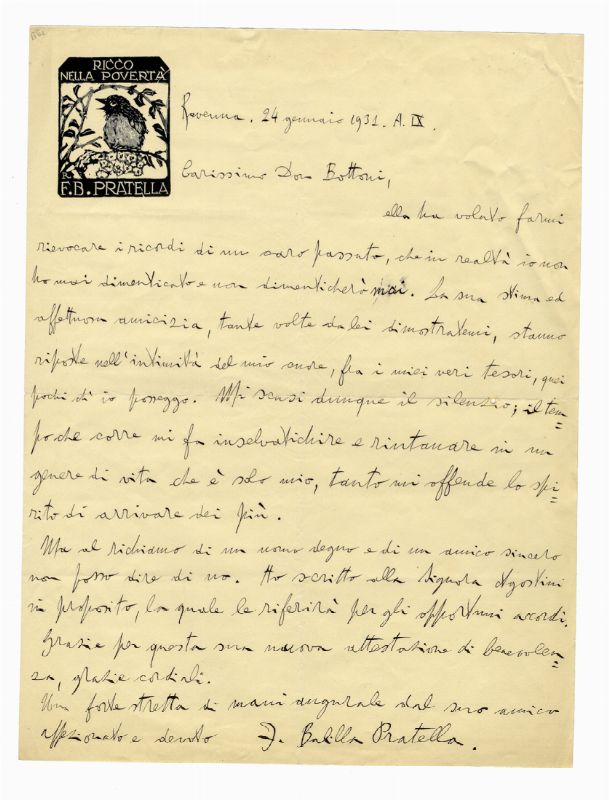 RICCO
NELLA POVERTÀ
F.B. PRATELLA
Ravenna. 24 gennaio 1931. A. IX.
Carissimo Don Bottoni,
ella ha voluto farmi
rievocare i ricordi di un caro passato, che in realtà io non
ho mai dimenticato e non dimenticherò mai. La sua stima ed
affettuosa amicizia, tante volte da lei dimostratemi, stanno
riposte nell'intimità del mio cuore, fra i miei veri tesori, quei
pochi ch'io posseggo. Mi scusi dunque il silenzio; il tem=
po che corre mi fa inselvatichire e rintanare in un
genere di vita che è solo mio, tanto mi offende lo spi=
rito di arrivare dei più.
Ma al richiamo di un uomo degno e di un amico sincero
non posso dire di no. Ho scritto alla Signora Agostini
in proposito, la quale le riferirà per gli opportuni acordi.
Grazie per questa sua nuova attestazione di benevolen=
za, grazie cordiali.
Una forte stretta di mani augurale dal suo amico
affezionato e devoto F. Balilla Pratella.